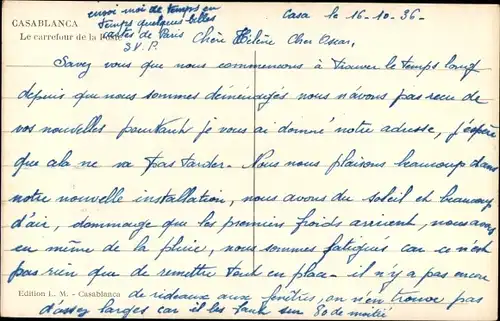 CASABLANCA
Le carrefour de la Poste
envoi moi de temps en
temps quelques belles
cartes de Paris
S.V.P.
Casa le 16-10-36.
Chère Hélène Cher Oscar,
Savez vous que nous commencons à trouver le temps long
depuis que nous sommes déménagés nous n'avons pas recu de
vos nouvelles pourtant je vous ai donné notre adresse, j'espère
que cela ne va pas tarder. Nous nous plaisons beaucoup dans
notre nouvelle installation, nous avons du soleil et beaucoup
d'air, dommage que les premiers froids arrivent, nous avons
eu même de la pluie, nous sommes fatigués car ce n'est
pas rien que de remettre tout en place - il n'y a pas encore
Edition L. M. - Casablanca
de rideaux aux fenêtres, on n'en trouve pas
d'assez larges car il les faut sur 80 de moitié